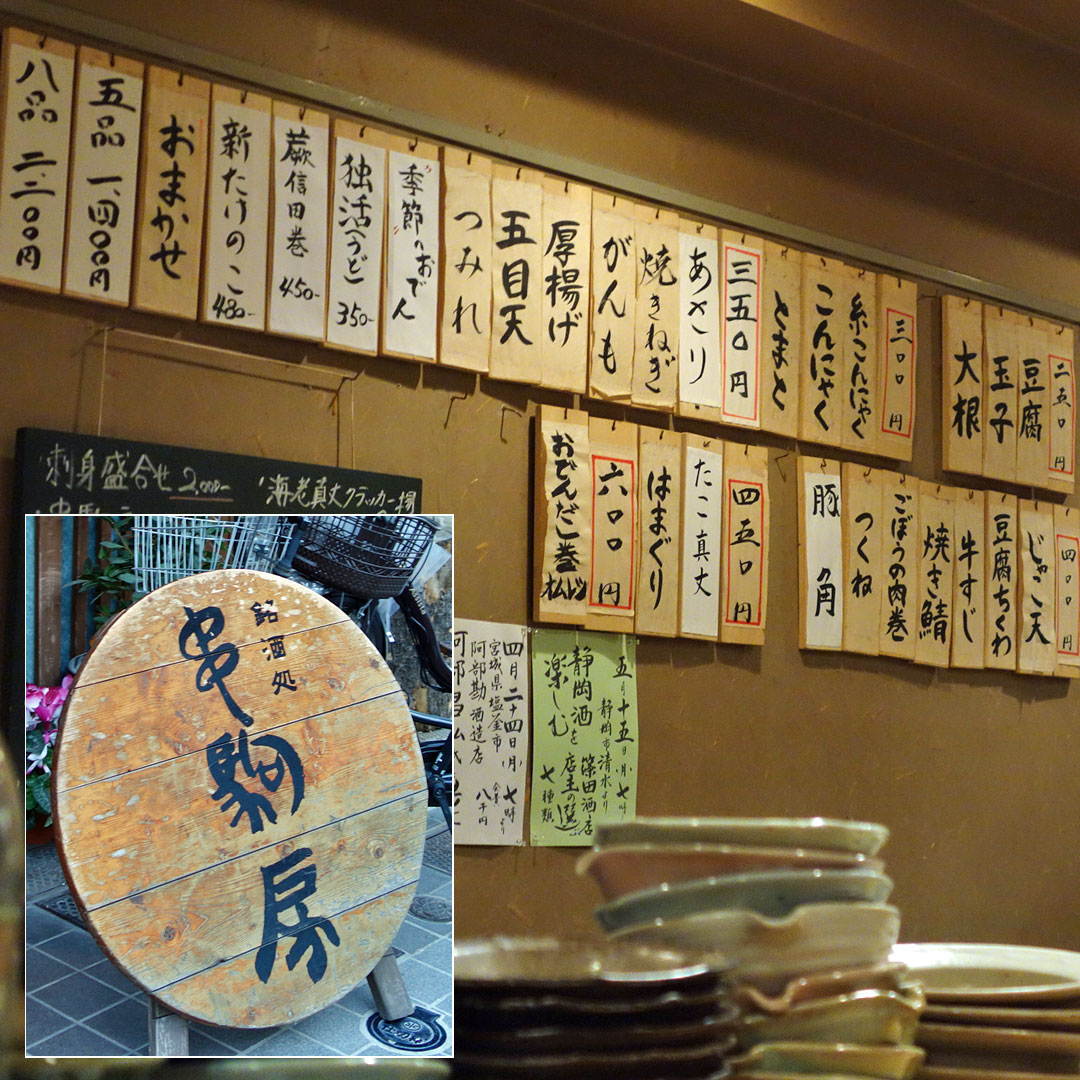 大根
玉子
豆腐
二五〇円
とまと
こんにゃく
糸こんにゃく
三〇〇円
つみれ
五目天
厚揚げ
がんも
焼きねぎ
あさり
三五〇円
"季節のおでん"
独活(うど) 350-
蕨信田巻 450-
新たけのこ 480-
おまかせ
五品 一、四〇〇円
八品 二、二〇〇円
豚角
つくね
ごぼうの肉巻
焼き鯖
牛すじ
豆腐ちくわ
じゃこ天
四〇〇円
はまぐり
たこ真丈
四五〇円
おでんだこ巻
六〇〇円
刺身盛合せ 2,000-
海老真丈クラッカー揚
五月十五日(月)七時
静岡市清水より
篠田酒店
店主の選
静岡酒を
楽しむ
七種類
四月二十四日(月)七時より
宮城県塩釜市
阿部勘酒造店
会費 八千円
銘酒処
串駒房